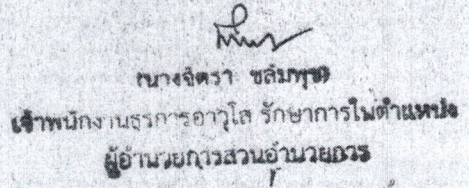 (นางจิตรา ขลัมพุช)
เจ้าพนักงานธุรการอาวุโส รักษาการในตำแหน่ง
ผู้อำนวยการส่วนอำนวยการ